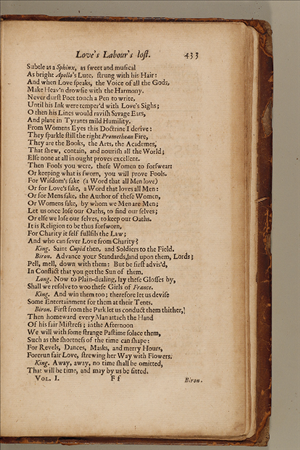 Love's Labour's lost. 433
Subtle as a Sphinx, as sweet and musical
As bright Apollo's Lute, strung with his Hair:
And when Love speaks, the Voice of all the Gods,
Make Heav'n drowsie with the Harmony.
Never durst Poet touch a Pen to write,
Until his Ink were temper'd with Love's Sighs;
O then his Lines would ravish Savage Ears,
And plant in Tyrants mild Humility.
From Womens Eyes this Doctrine I derive:
They sparkle still the right Promethean Fire,
They are the Books, the Arts, the Academes,
That shew, contain, and nourish all the World;
Else none at all in ought proves excellent.
Then Fools you were, these Women to forswear:
Or keeping what is sworn, you will prove Fools.
For Wisdom's sake (a Word that all Men love)
Or for Love's sake, a Word that loves all Men:
Or for Mens sake, the Author of these Women,
Or Womens sake, by whom we are Men;
Let us once lose our Oaths, to find our selves;
Or else we lose our selves, to keep our Oaths.
It is Religion to be thus forsworn,
For Charity it self fulfils the Law;
And who can sever Love from Charity?
King. Saint Cupid then, and Soldiers to the Field.
Biron. Advance your Standards, and upon them, Lords;
Pell, mell, down with them: But be first advis'd,
In Conflict that you get the Sun of them.
Long. Now to Plain-dealing, lay these Glosses by,
Shall we resolve to woo these Girls of France.
King. And win them too; therefore let us devise
Some Entertainment for them at their Tents.
Biron. First from the Park let us conduct them thither,
Then homeward every Man attach the Hand
Of his fair Mistress; in the Afternoon
We will with some strange Pastime solace them,
Such as the shortness of the time can shape:
For Revels, Dances, Masks, and merry Hours,
Forerun fair Love, strewing her Way with Flowers.
King. Away, away, no time shall be omitted,
That will be time, and may by us be fitted.
VOL. I. F f Biron.